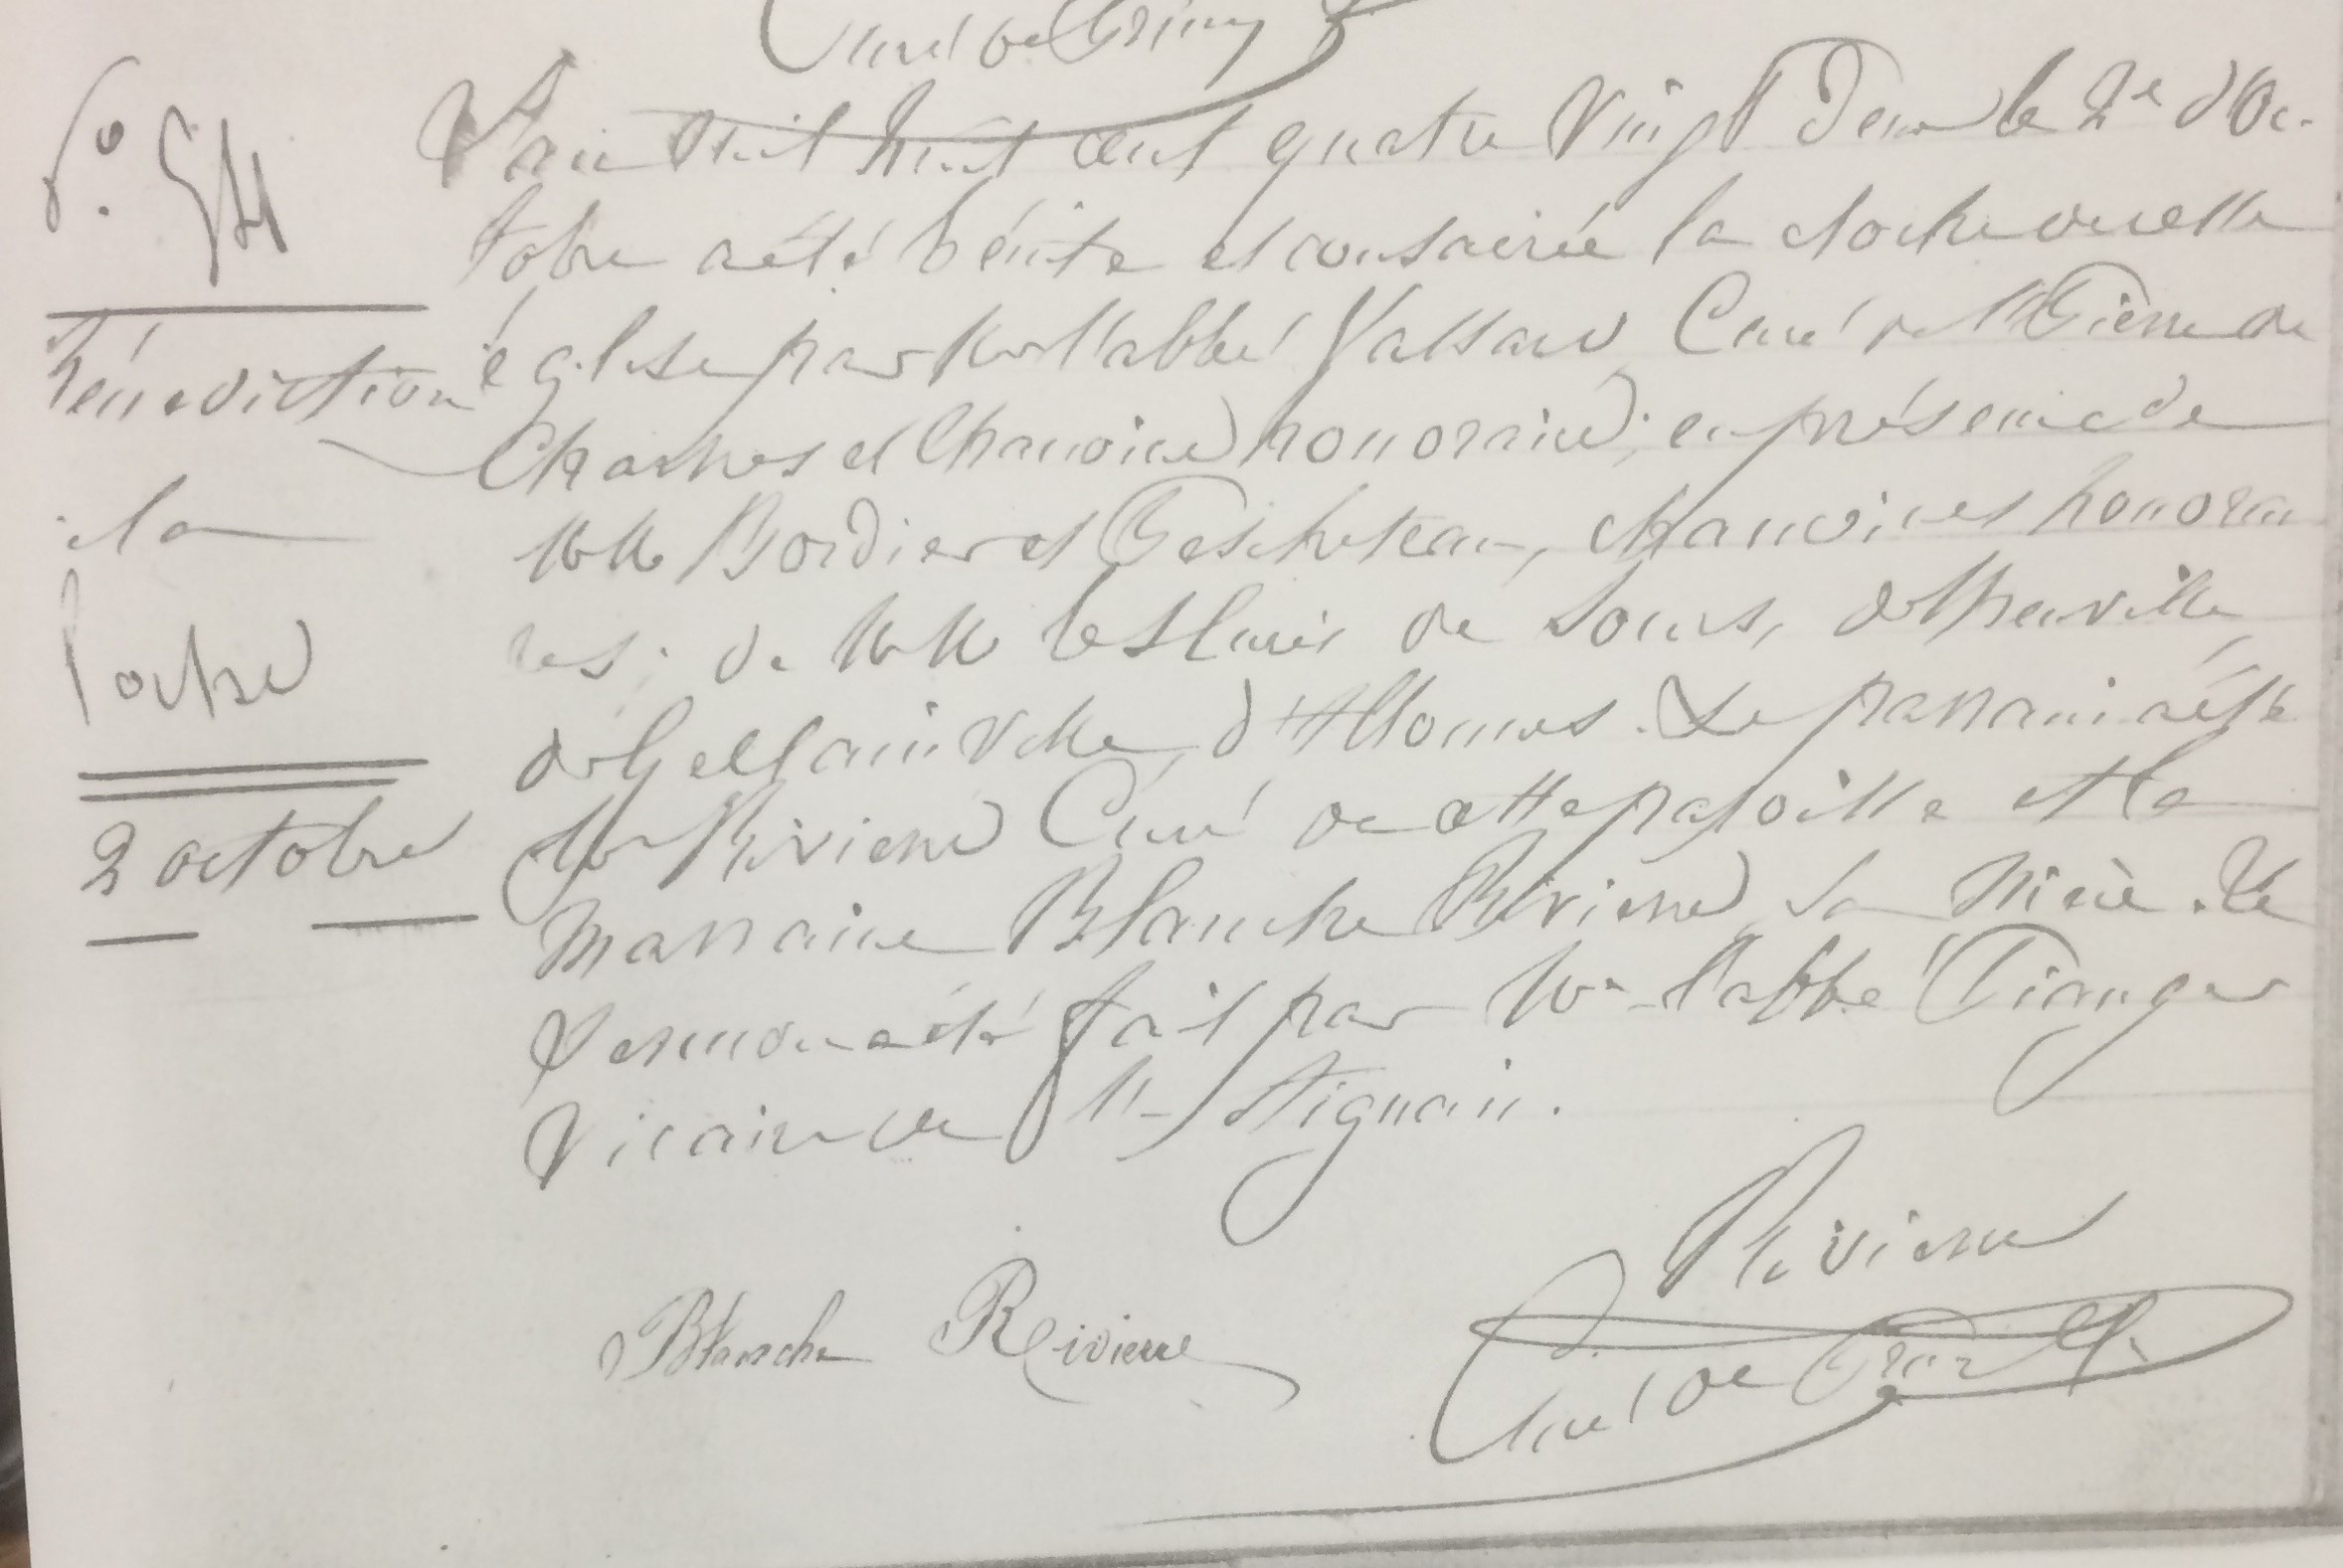 Curé de Prunay
bénédiction
la
cloche
2 octobre
L'an mil huit cent quatre vingt deux le 2e d'Oc-
tobre a été bénite et consacrée la cloche de cette
église par Mr l'abbé Vassard Curé de St Pierre de
Chartres et Chanoine honoraire; en présence de
MM Bordier et Techeteau, chanoines honorai
res; de MM les Curés de Sours, de
de Gellainville, d'Allonnes. Le parrain a été
Mr Rivierre Curé de cette paroisse et la
Marraine Blanche Rivierre, sa Nièce. Le
Sermon a été fait par Mr l'abbé
Vicaire de St Aignan.
Rivierre
Blanche Rivierre
Curé de